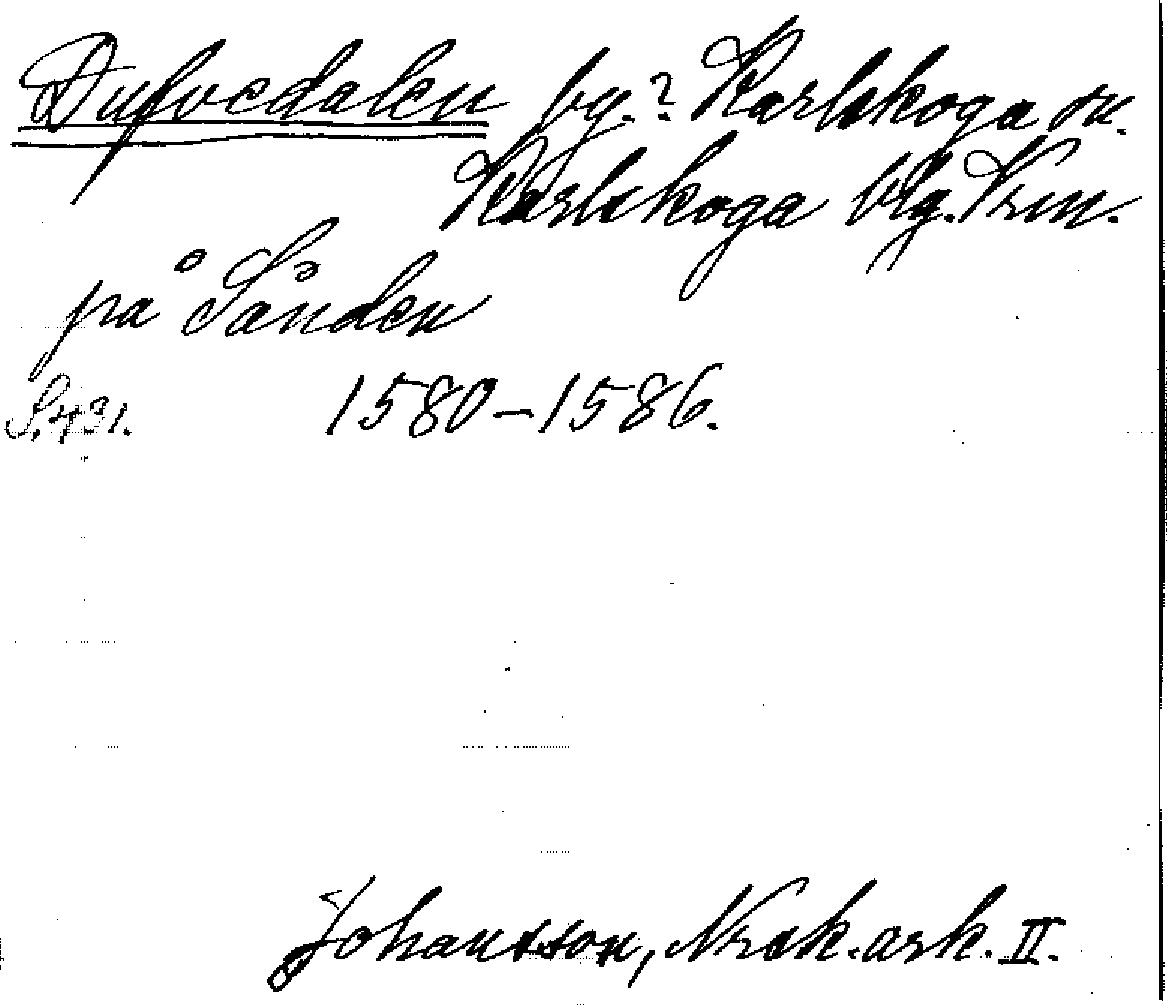 Dufvedalen by.? Karlskoga sn.
Karlskoga blg. Vrm.
på Sånden
S. 431. 1580–1586.
Johansson, Nrck. ark. II.